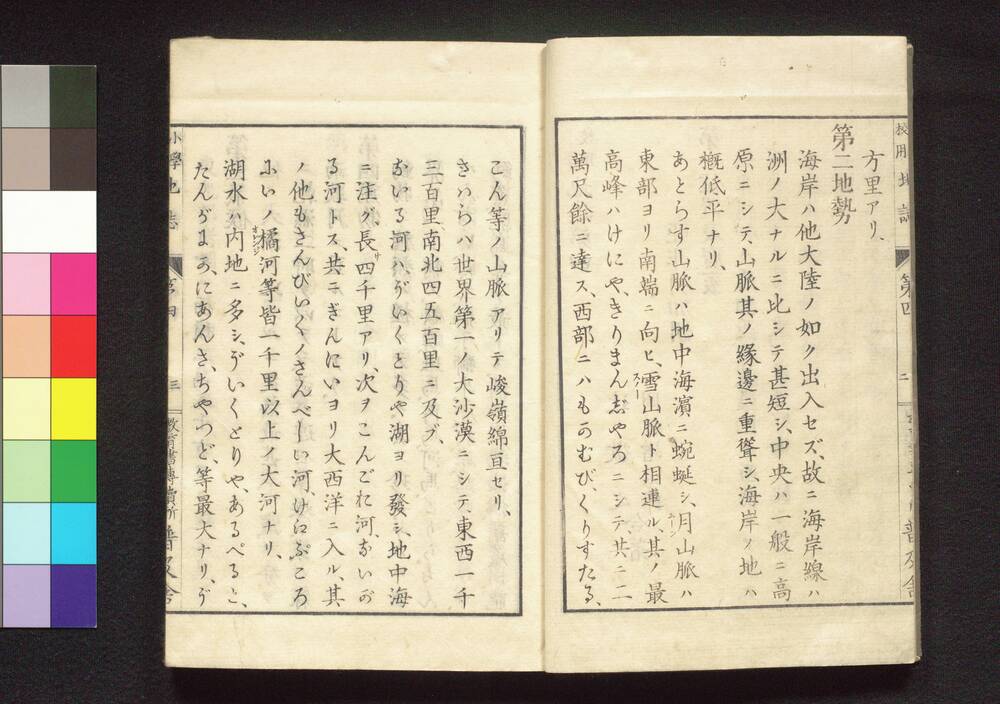 方里アリ、
第二地勢
海岸ハ他大陸ノ如ク出入セズ、故ニ海岸線ハ
洲ノ大ナルニ比シテ甚短シ、中央ハ一般ニ高
原ニシテ、山脈其ノ緣邊ニ重聳シ、海岸ノ地ハ
概低平ナリ、
あとらす山脈ハ地中海濱ニ蜿蜒シ、月山脈ハ
東部ヨリ南端ニ向ヒ、雪山脈ト相連ル、其ノ最
高峰ハけにや、きりまんぢやろニシテ共ニ二
萬尺餘ニ達ス、西部ニハものむび、くりすたる、
こん等ノ山脈アリテ峻嶺綿亘セリ、
さハらハ世界第一ノ大沙漠ニシテ、東西一千
三百里、南北四五百里ニ及ブ、
ないる河ハ、ゔいくとりや湖ヨリ發シ、地中海
ニ注グ、長サ四千里アリ、次ヲこんごれ河、ないぢ
る河トス、共ニぎんにいヨリ大西洋ニ入ル、其
ノ他もさんびいくノさんべしい河、けいぷころ
ふいノ橘河等皆一千里以上ノ大河ナリ、
オレンジ
湖水ハ内地ニ多シ、ゔいくとりや、あるべると、
たんがにか、にあんさ、ちやつど、等最大ナリ、ゔ
第四
二
小學地誌
三
教育書專賣所普及舍